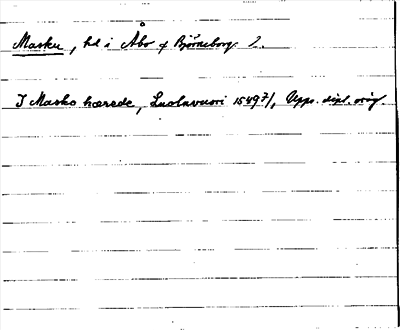 Masku, hd i Åbo o Björneborg l.
I Masko hærade, Luolavuori 1549 7/1, Upps. dipl. orig.